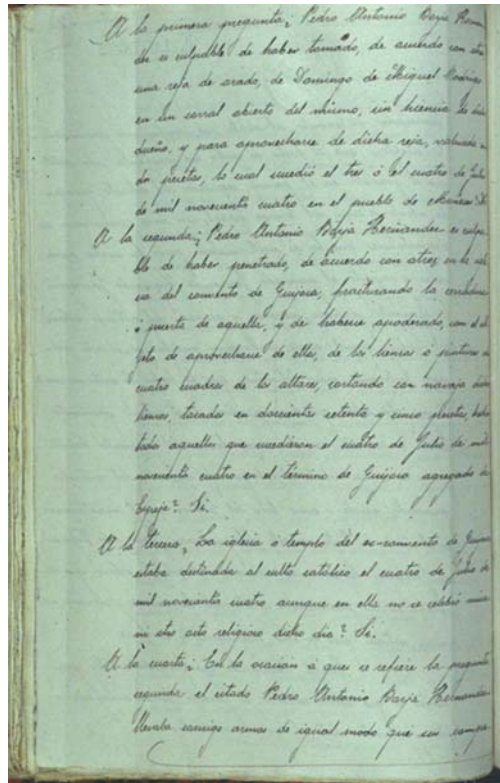 A la primera pregunta ¿Pedro Antonio Borja Hernan
der es culpable de haber tomado, de acuerdo con otro
una reja de arado, de Domingo de Miguel Rodrigo
en un corral abierto del mismo, sin licencia de dicho
dueño, y para aprovecharse de dicha reja, valuada en
dos pesetas, lo cual sucedió el tres ó el cuatro de Julio
de mil novecientos cuatro en el pueblo de
A la segunda ¿Pedro Antonio Borja Hernandez es culpa
ble de haber penetrado, de acuerdo con otros en la
del convento de Guijosa, fracturando la cerradura
ó puerta de aquella, y de haberse apoderado, con el ob
jeto de aprovecharse de ella, de los lienzos ó pinturas de
cuatro cuadros de los altares, cortando con navaja dichos
lienzos, tasados en doscientas setenta y cinco pesetas, hechos
todos aquellos que sucedieron el cuatro de Julio de mil
novecientos cuatro en el término de Guijosa agregado de
Espeja? Si.
A la tercera ¿La iglesia ó templo del ex-convento de Guijosa
estaba destinada al culto católico el cuatro de Julio de
mil novecientos cuatro aunque en ella no se celebró misa
ni otro acto religioso dicho dia? Si.
A la cuarta ¿En la ocasion a que se refiere la pregunta
segunda el citado Pedro Antonio Borja Hernandez
llevaba consigo armas de igual modo que sus compañe